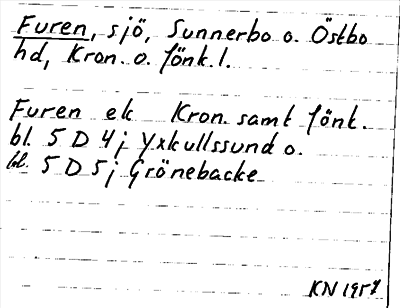 Furen, sjö, Sunnerbo o. Östbo
hd, Kron. o. Jönk. l.
Furen ek Kron. samt Jönk.
bl. 5 D 4 j Yxkullssund o.
bl. 5 D 5 j Grönebacke
KN 1957